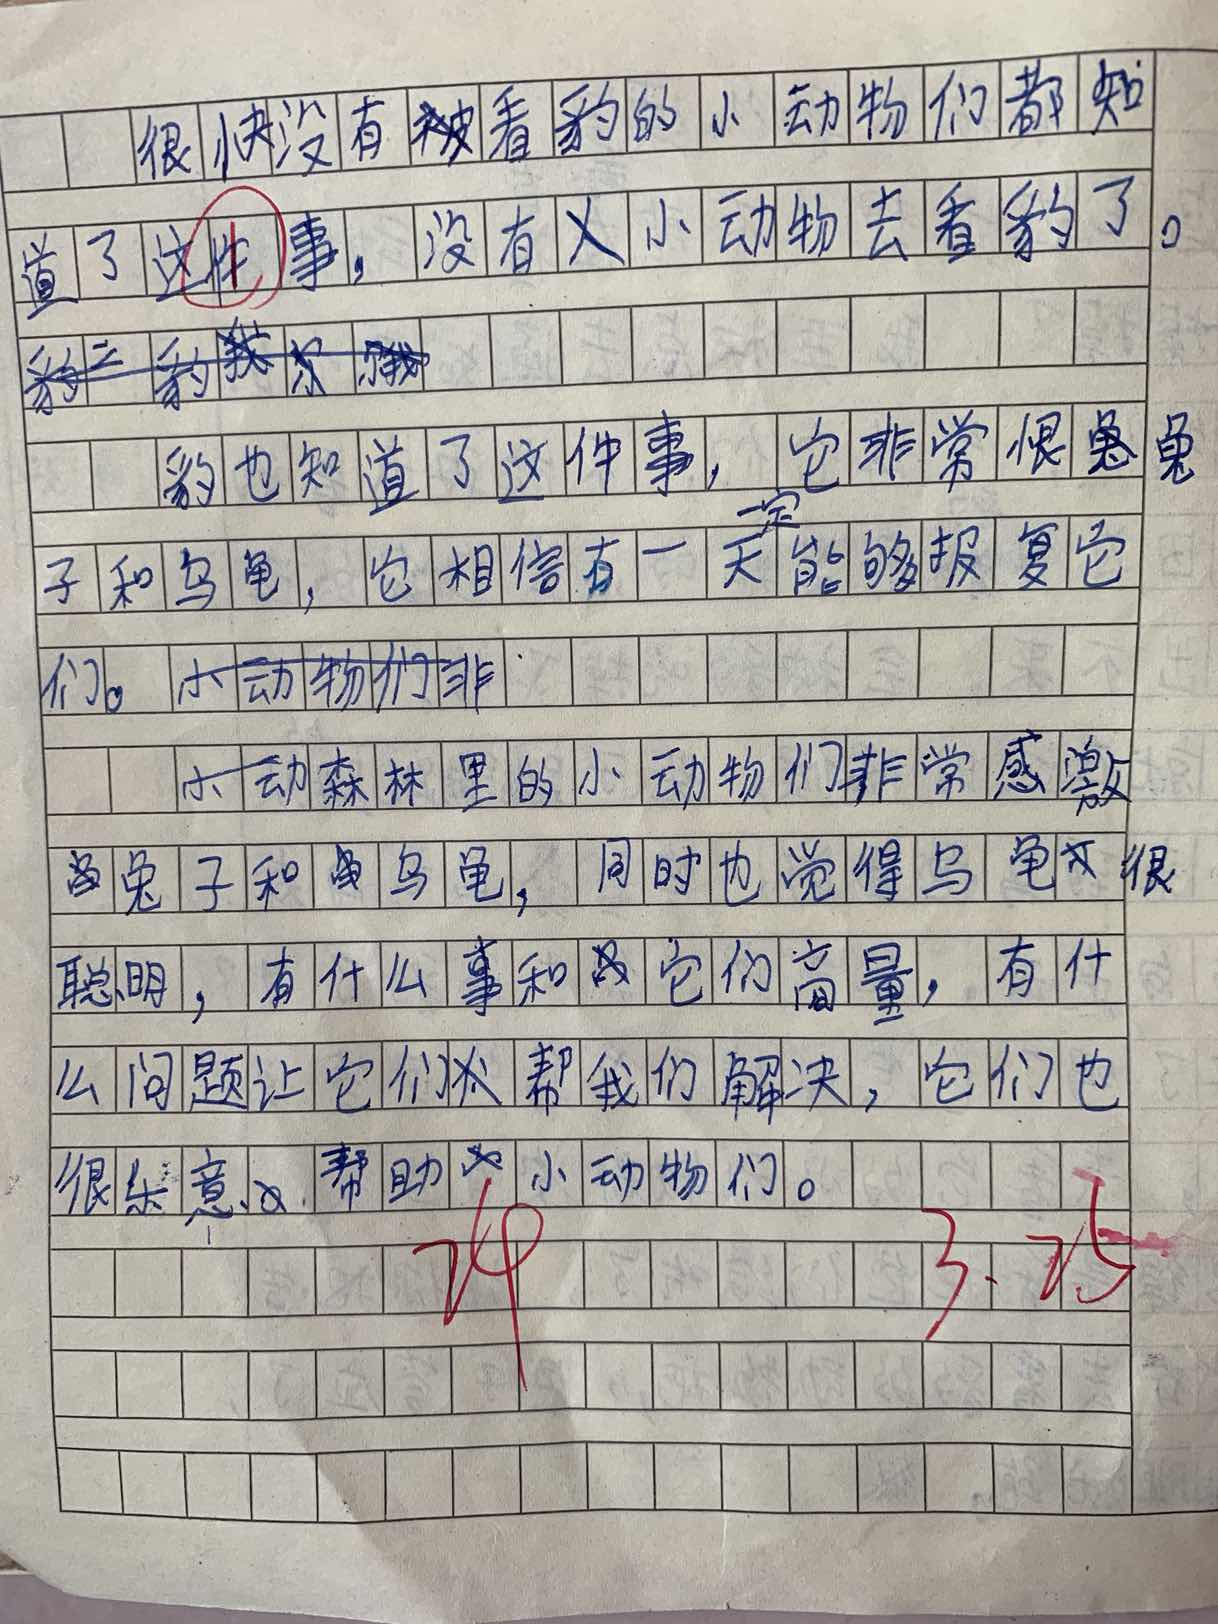 很快没有被看豹的小动物们都知
道了这件事，没有小动物去看豹了。
豹也知道了这件事，它非常恨兔
子和乌龟，它相信有一天一定能够报复它
们。小动物们非
小动森林里的小动物们非常感激
兔子和乌龟，同时也觉得乌龟很
聪明，有什么事和它们商量，有什
么问题让它们帮我们解决，它们也
很乐意帮助小动物们。
24
3.25